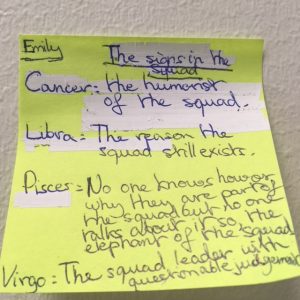 Emily
The signs in the
squad
Cancer: the humorist
of the squad.
Libra: The reason the
squad still exists.
Pisces: No one knows how or
why they are part of
the squad but no one
talks about it so the
elephant of the squad
Virgo: The squad leader with
questionable judgement